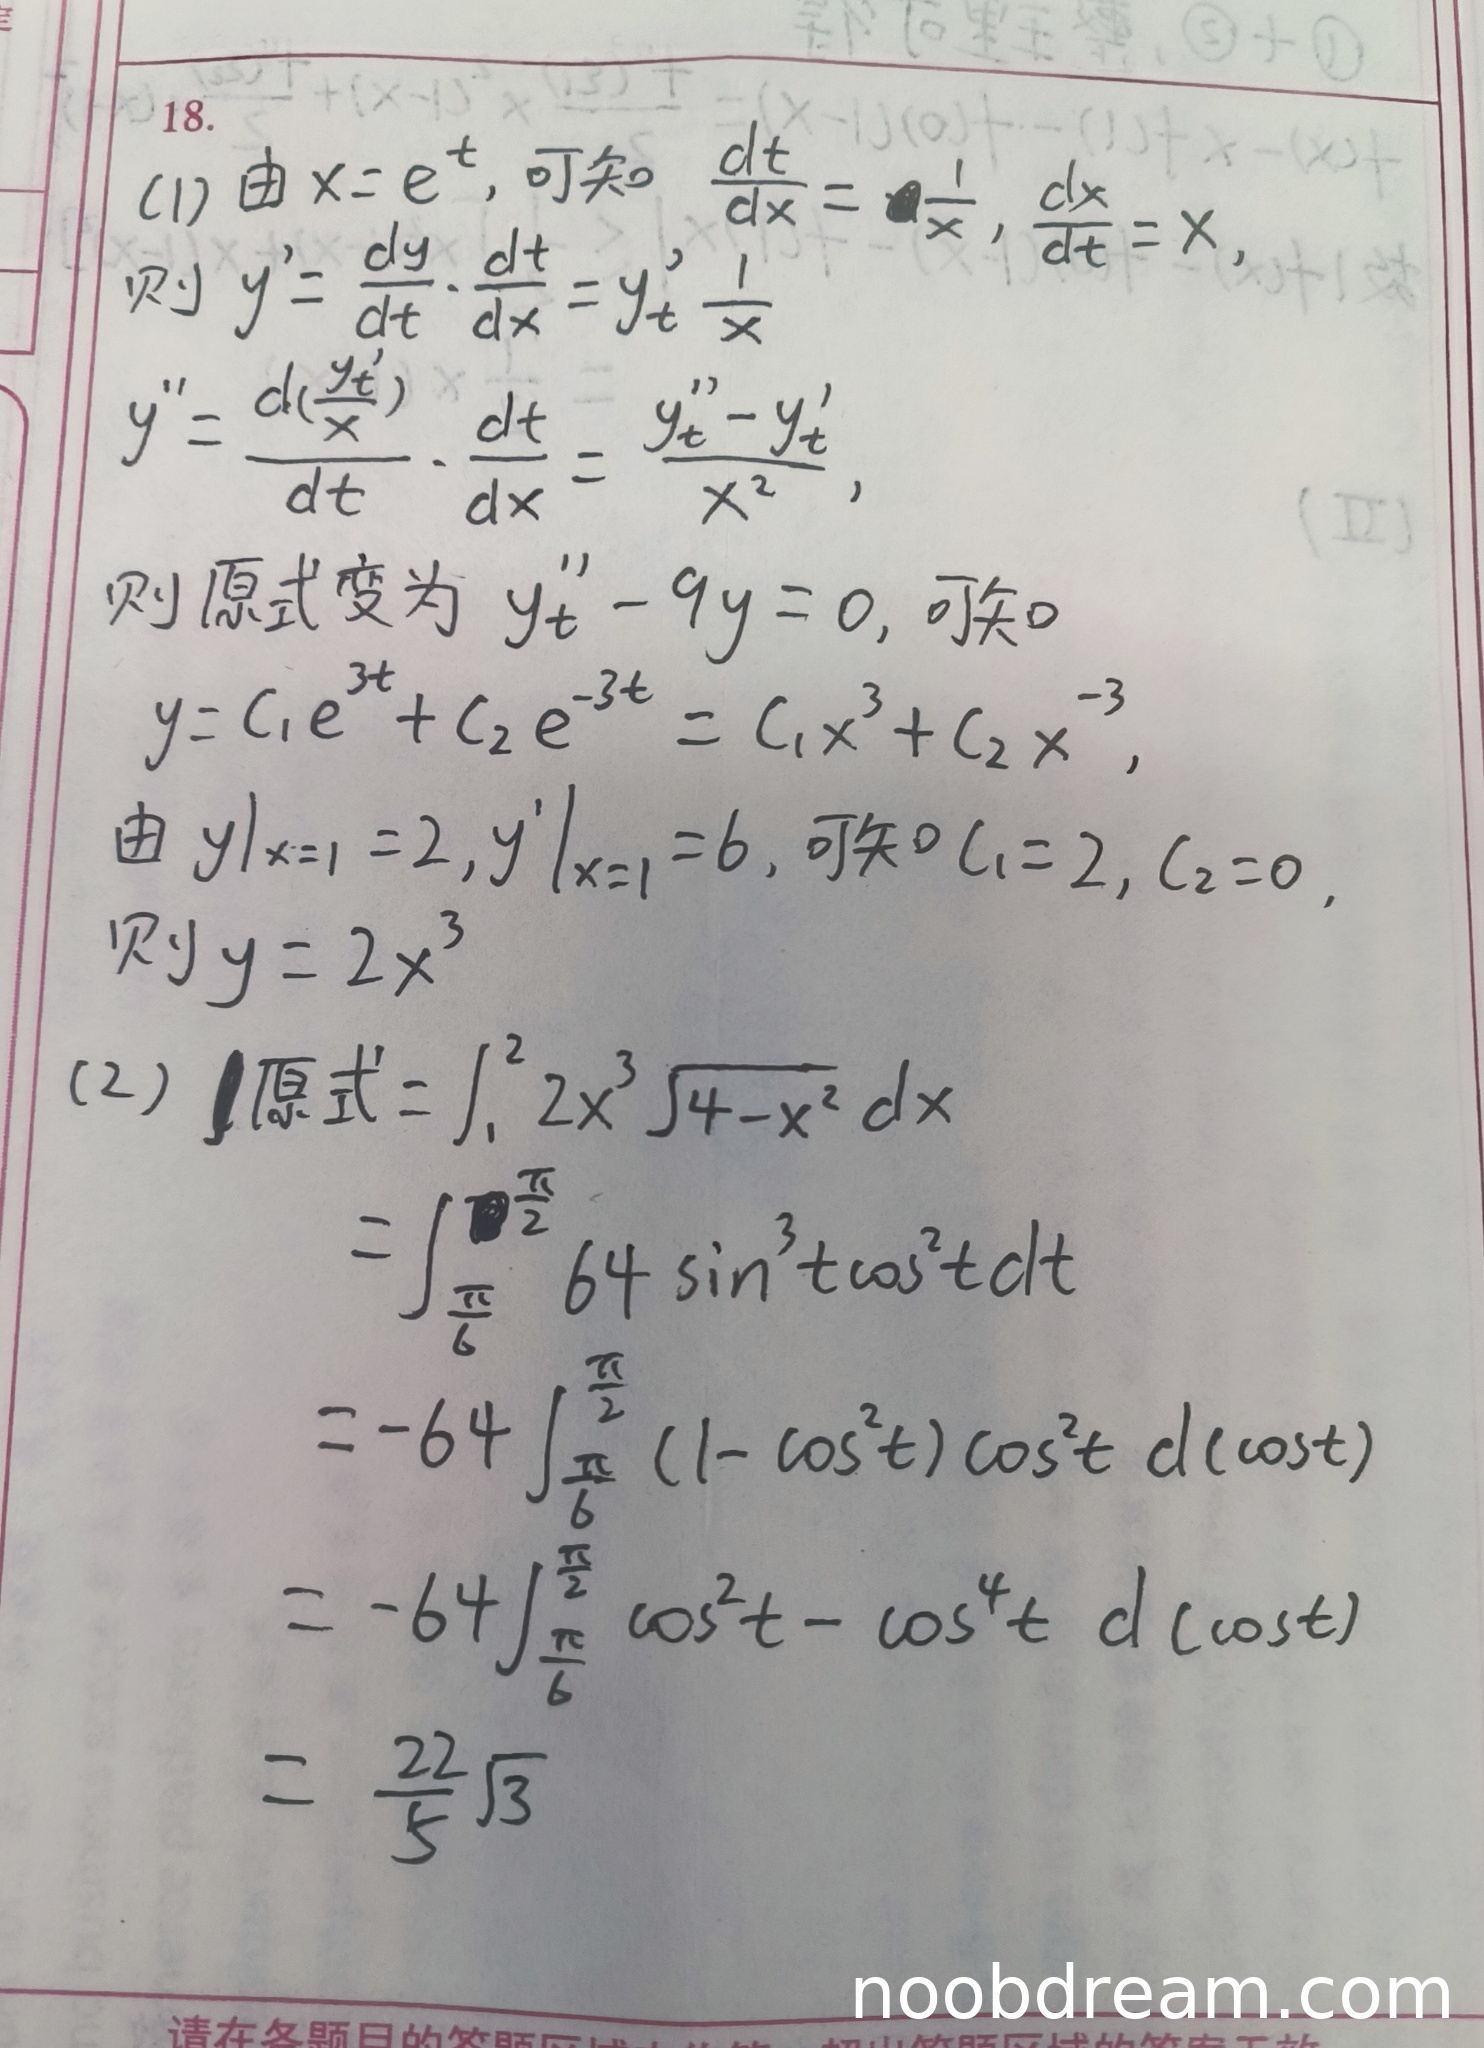 18.
(1) 由 x = e^t, 可知 dt/dx = 1/x, dx/dt = x,
则 y' = dy/dt · dt/dx = y_t' 1/x
y'' = d(y_t'/x)/dt · dt/dx = (y_t'' - y_t')/x²,
则原式变为 y_t'' - 9y = 0, 可知
y = C₁e^{3t} + C₂e^{-3t} = C₁x³ + C₂x^{-3},
由 y|_{x=1} = 2, y'|_{x=1} = 6, 可知 C₁ = 2, C₂ = 0,
则 y = 2x³
(2) 原式 = ∫₁² 2x³ √(4-x²) dx
= ∫_{π/6}^{π/2} 64 sin³t cos²t dt
= -64 ∫_{π/6}^{π/2} (1 - cos²t) cos²t d(cost)
= -64 ∫_{π/6}^{π/2} cos²t - cos⁴t d(cost)
= 22/5 √3
noobdream.com
请在各题目的答题区域